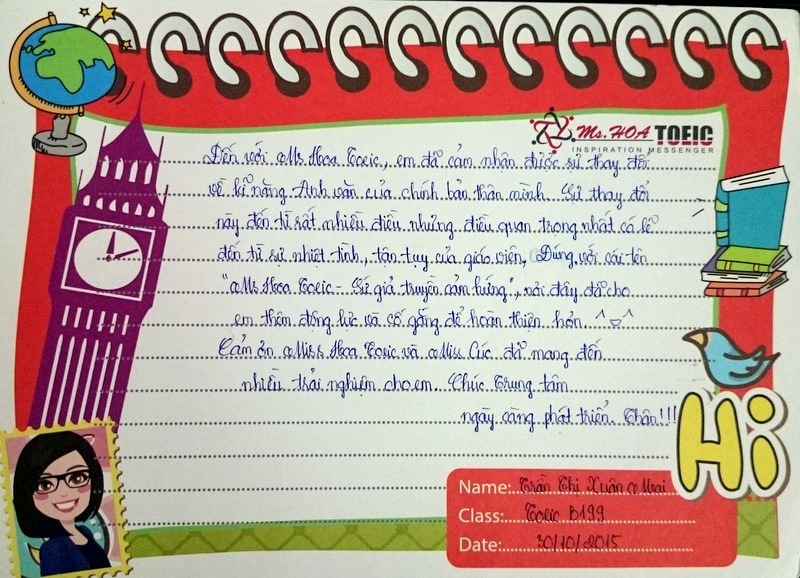 Ms. HOA TOEIC
INSPIRATION MESSENGER
Đến với Ms. Hoa Toeic, em đã cảm nhận được sự thay đổi
về kĩ năng Anh văn của chính bản thân mình. Sự thay đổi
này đến từ rất nhiều điều nhưng điều quan trọng nhất có lẽ
đến từ sự nhiệt tình, tận tụy của giáo viên. Đúng với cái tên
"Ms Hoa Toeic - Sứ giả truyền cảm hứng", nơi đây đã cho
em thêm động lực và cố gắng để hoàn thiện hơn. ^◡^
Cảm ơn Miss Hoa Toeic và Miss Cúc đã mang đến
nhiều trải nghiệm cho em. Chúc Trung tâm
ngày càng phát triển. Thân!!!
Hi
Name: Trần Thị Xuân Mai
Class: Toeic B199
Date: 30/10/2015